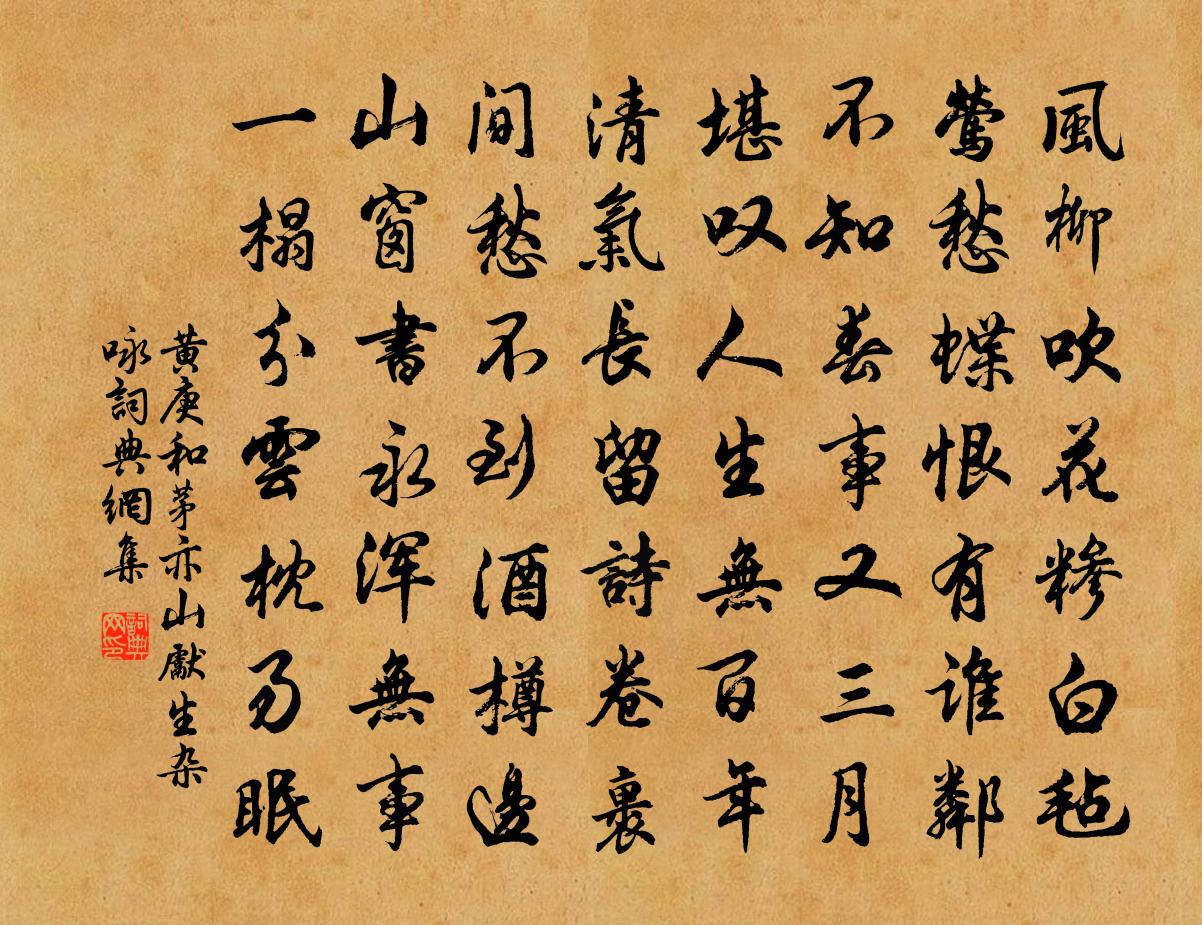 風柳吹花糝白毡
鶯愁蝶恨有谁鄰
不知春事又三月
堪叹人生無百年
清氣長留詩卷裏
间愁不到酒樽邊
山窗書永浑無事
一榻分雲枕易眠
黄庚和茅亦山獻生杂
咏詞典網集
詞典网印